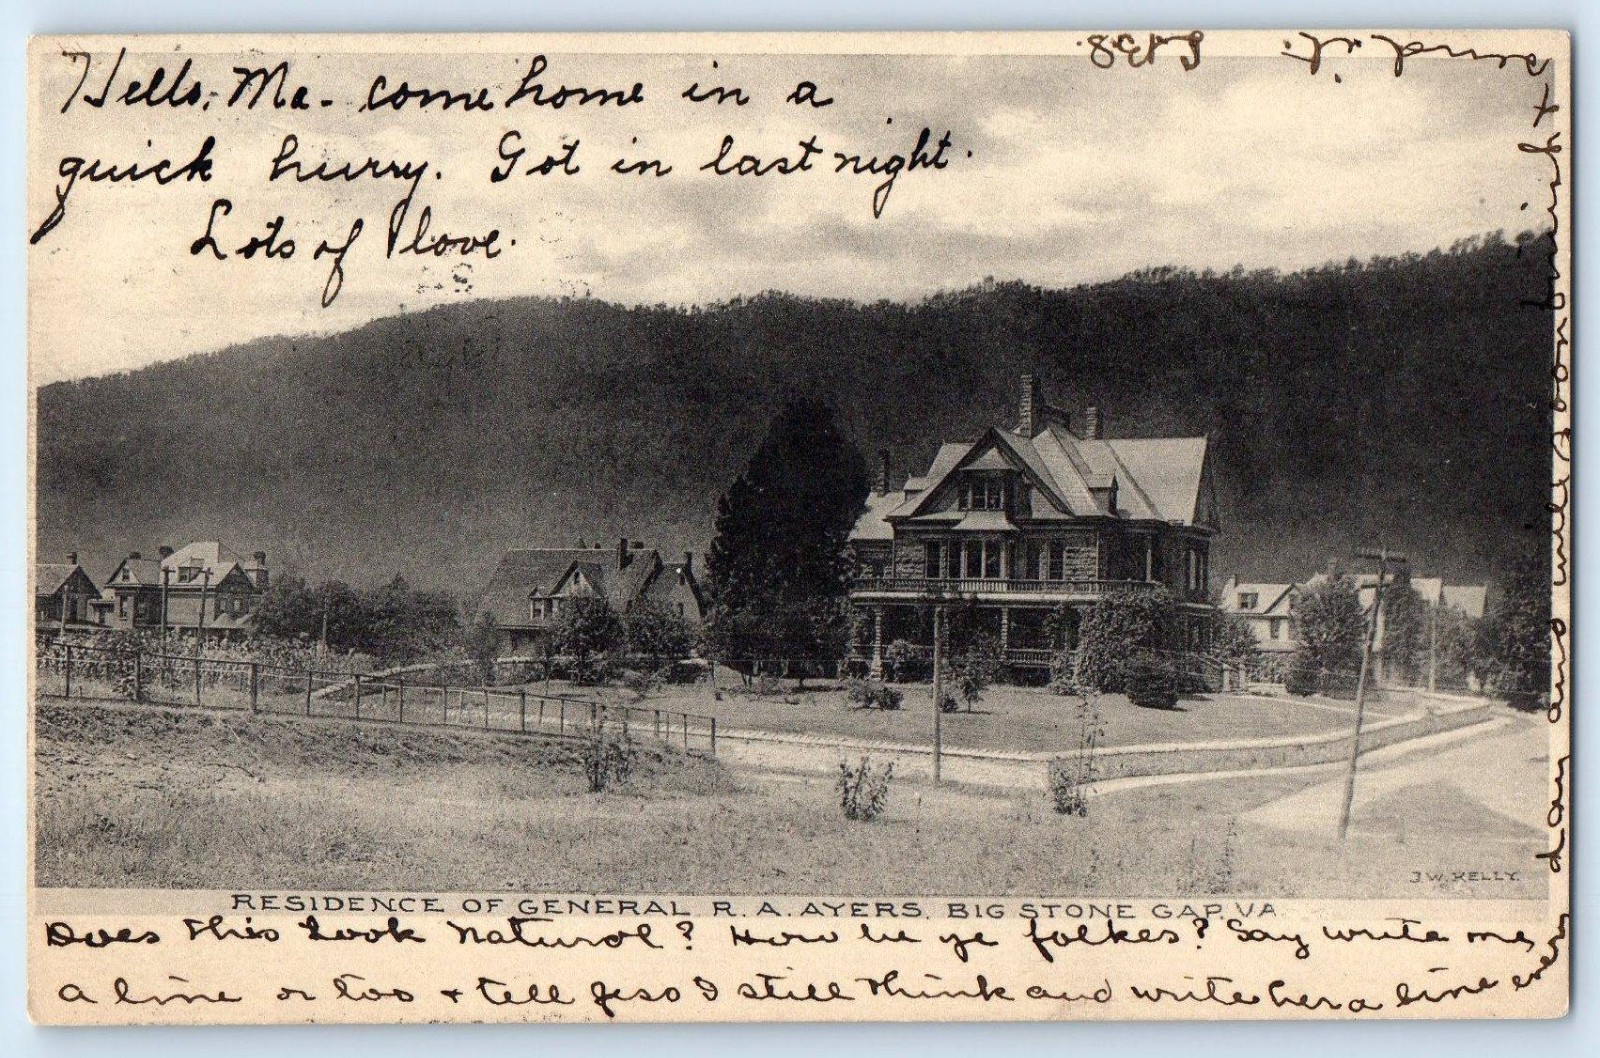 Hello, Ma - come home in a
quick hurry. Got in last night.
Lots of love.
J.W. KELLY.
RESIDENCE OF GENERAL R. A. AYERS, BIG STONE GAP, VA
Does this look natural? How be ye folkes? Say write me
a line or too + tell Jeso I still think and write her a line every
day and will soon
send it.